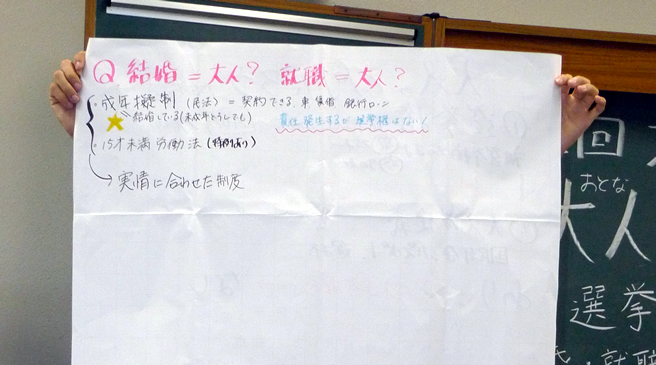 Q 結婚 = 大人? 就職 = 大人?
・成年擬制 (民法) = 契約できる 車 賃借 銀行ローン
結婚している(未成年どうしでも) 責任発生するが選挙権はない!
・15才未満 労働法 (特例あり)
→ 実情に合わせた制度
回
おとな
大人
選挙
就職